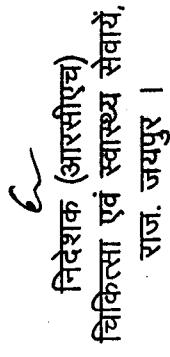 निदेशक (आरसीएच)
चिकित्सा एवं स्वास्थ्य सेवायें,
राज. जयपुर ।